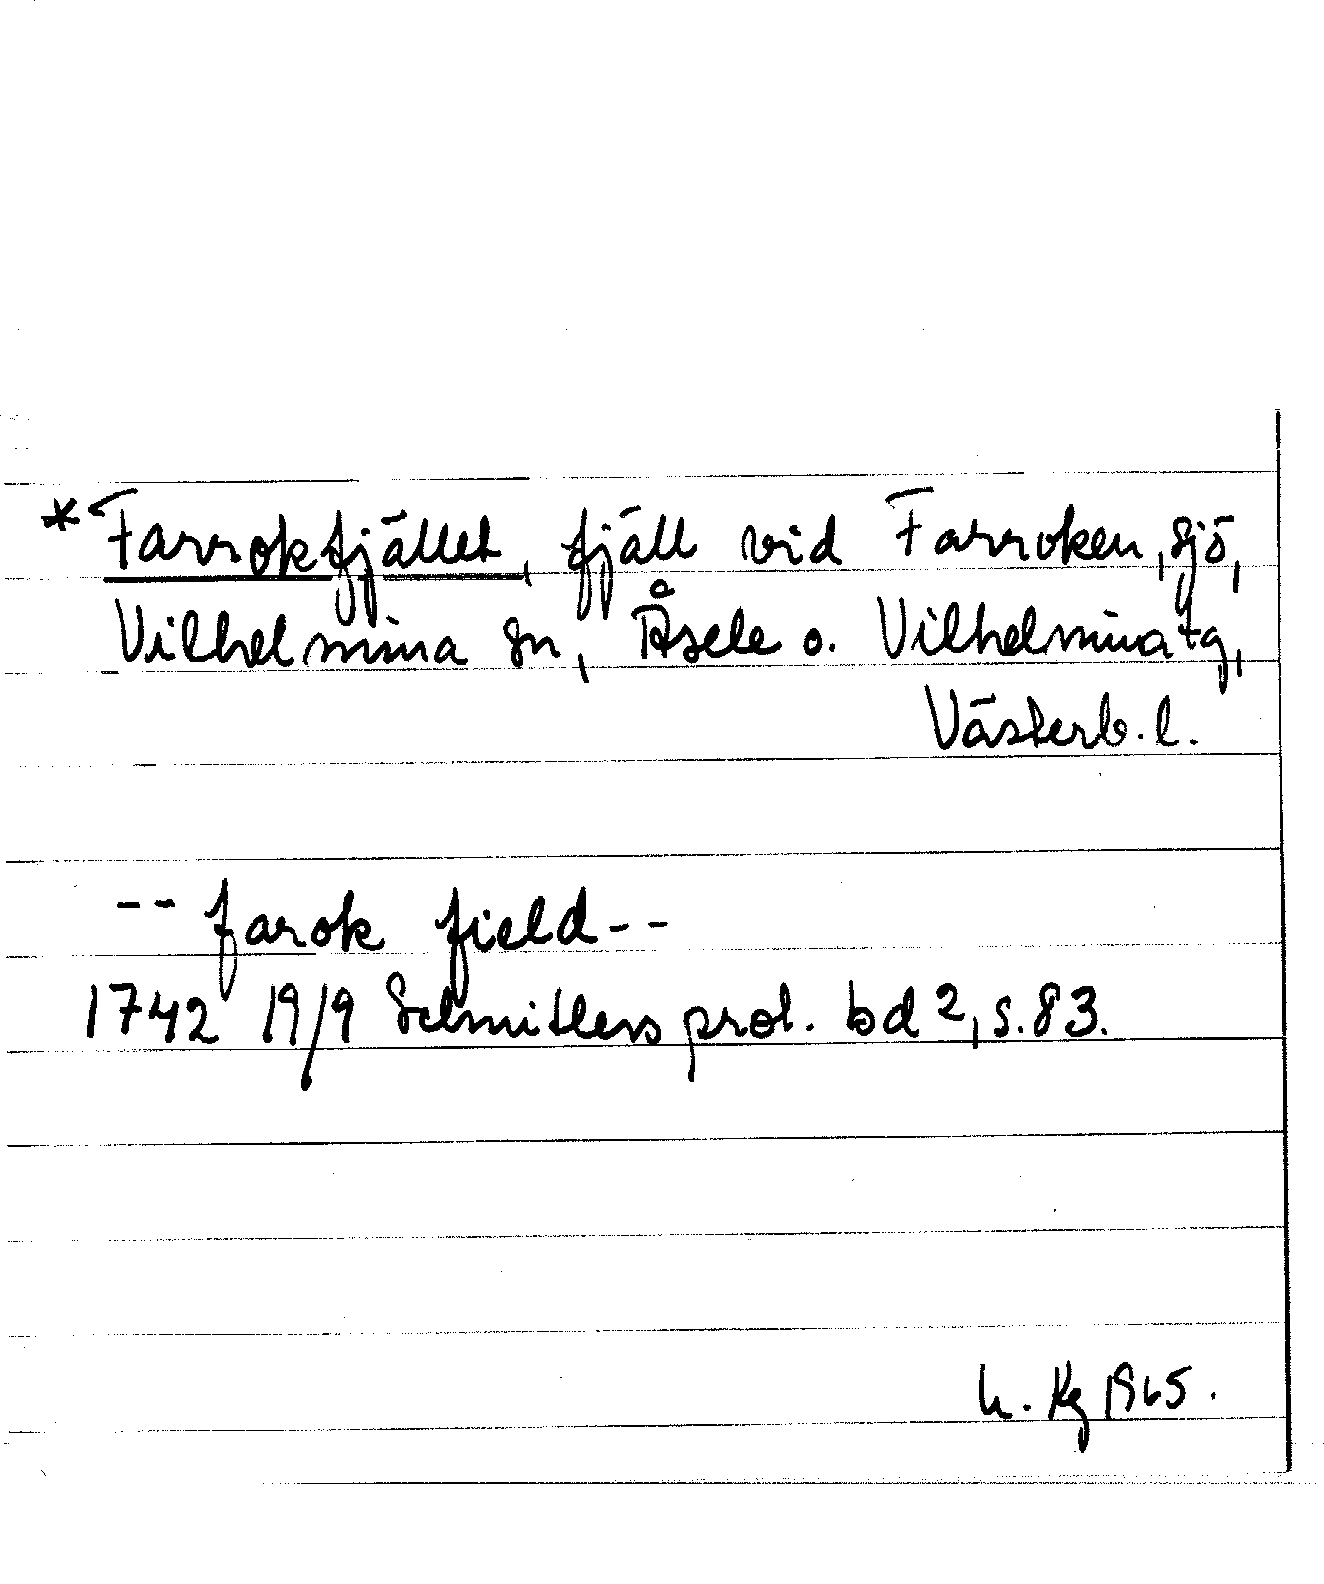 *Farrokfjället, fjäll vid Farroken, sjö,
Vilhelmina sn, Åsele o. Vilhelmina tg,
Västerb. l.
-- farok field--
1742 19/9 Schnitlers prot. bd 2, s. 83.
Kg 1965.